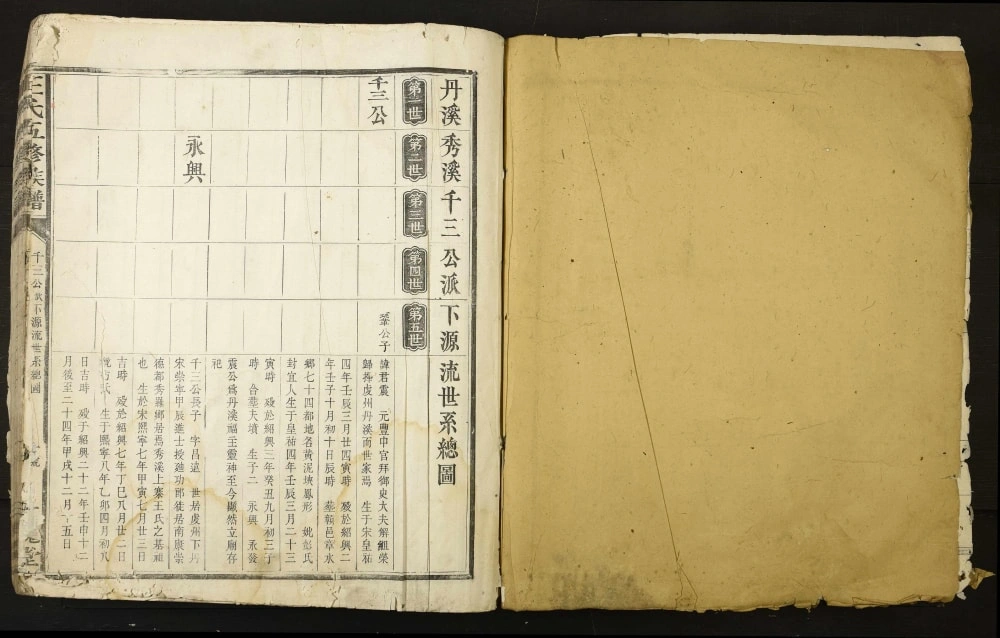 丹溪秀溪千三公派下源流世系總圖
第一世
第二世
第三世
第四世
第五世
千三公
鞏公子
諱君震 元豐中官拜御史大夫解組榮
歸葬虔州丹溪而世家焉 生于宋皇祐
四年壬辰三月廿四寅時 歿於紹興二
年壬子十月初十日辰時 塟贛邑章水
鄉七十四都地名黃泥坡鳳形 妣彭氏
封宜人生于皇祐四年壬辰三月二十三
寅時 歿於紹興三年癸丑九月初三子
時 合塟夫墳 生子二 永興 永發
震公爲丹溪福主靈神至今顯然立廟存
祀
永興
千三公長子 字昌遠 世居虔州下丹
宋崇寧甲辰進士授廸功郎徙居南康崇
德都秀羅鄉居焉秀溪上寨王氏之基祖
也 生於宋熙寧七年甲寅七月廿三日
吉時 歿於紹興七年丁巳八月廿二日
生于熙寧八年乙卯四月初八
日吉時 歿于紹興二十二年壬申十二
月後至二十四年甲戌十二月 五日
王氏五修族譜
千三公派下源流世系總圖